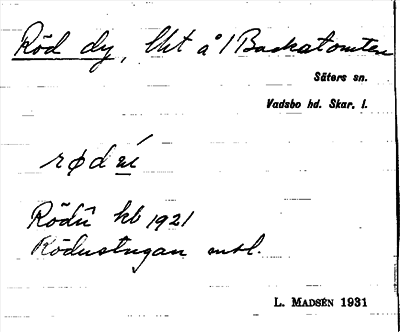 Röd dy, lht å 1 Backatomten
Säters sn.
Vadsbo hd. Skar. l.
rød ú
Rödu hb 1921
Rödustugan muntl.
L. MADSÉN 1931